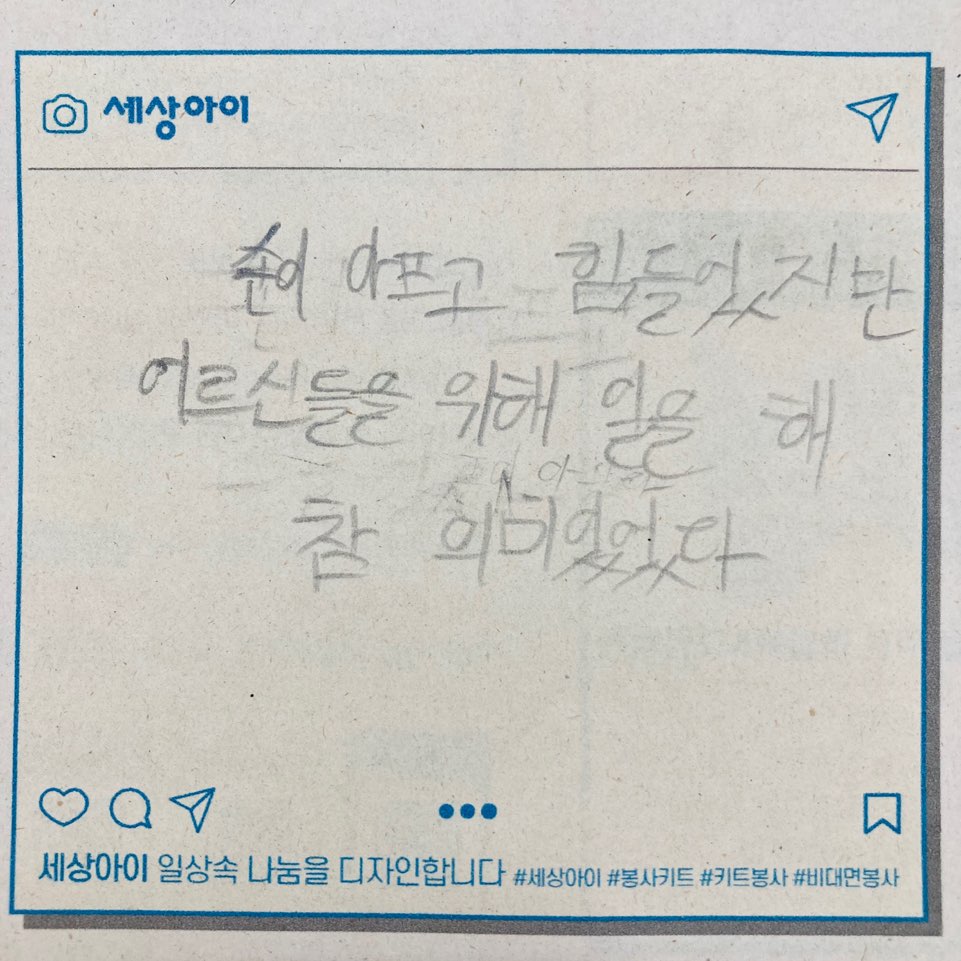 세상아이
손이 아프고 힘들었지만
어르신들을 위해 일을 해
참 의미있었다
세상아이 일상속 나눔을 디자인합니다 #세상아이 #봉사키트 #키트봉사 #비대면봉사